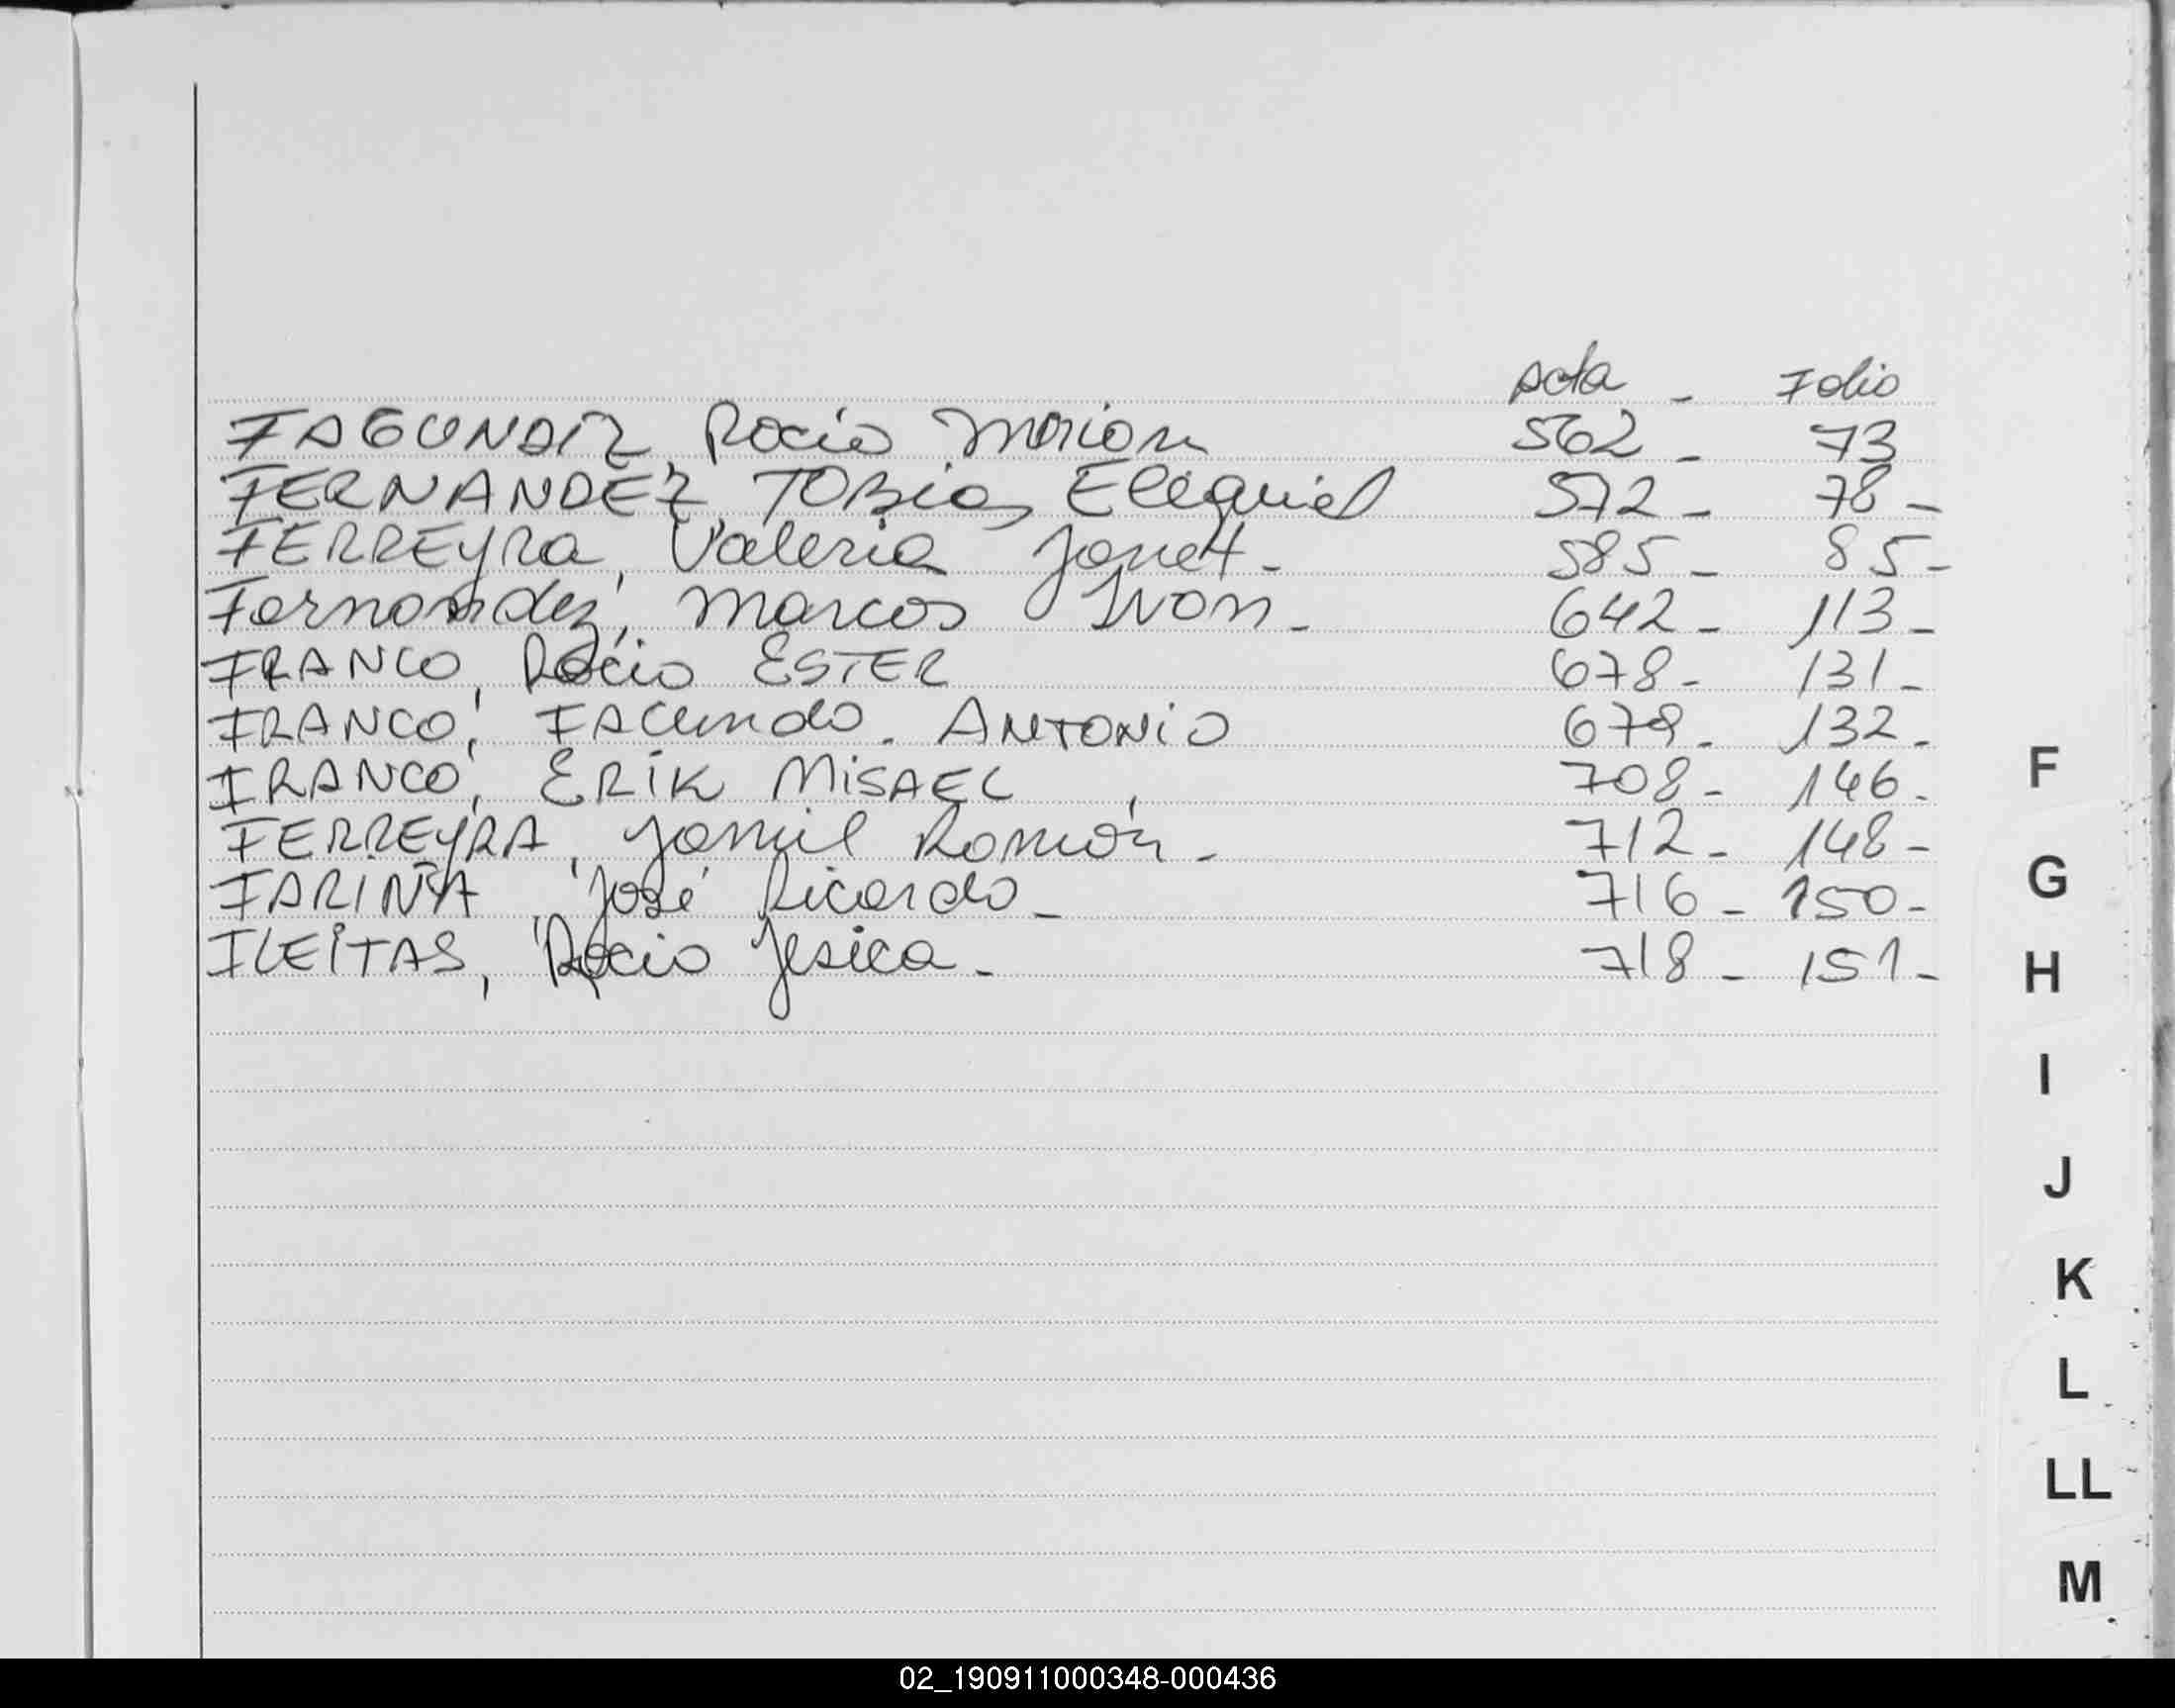 Acta - Folio
FAGUNDIZ, Rocio Marian 562 - 73
FERNANDEZ, TOBias Elequiel 572 - 78 -
FERREyRa, Valeria Janet - 585 - 85 -
Fernandez, Marcos Ivan - 642 - 113 -
FRANCO, Rocio ESTER 678 - 131 -
FRANCO, FACundo. ANTONIO 679 - 132 -
FRANCO, ERIK MISAEL 708 - 146 -
FERREYRA, Jamil Román - 712 - 148 -
FARIÑA, José Ricardo - 716 - 150 -
FLEITAS, Rocio Jesica - 718 - 151 -
F
G
H
I
J
K
L
LL
M
02_190911000348-000436